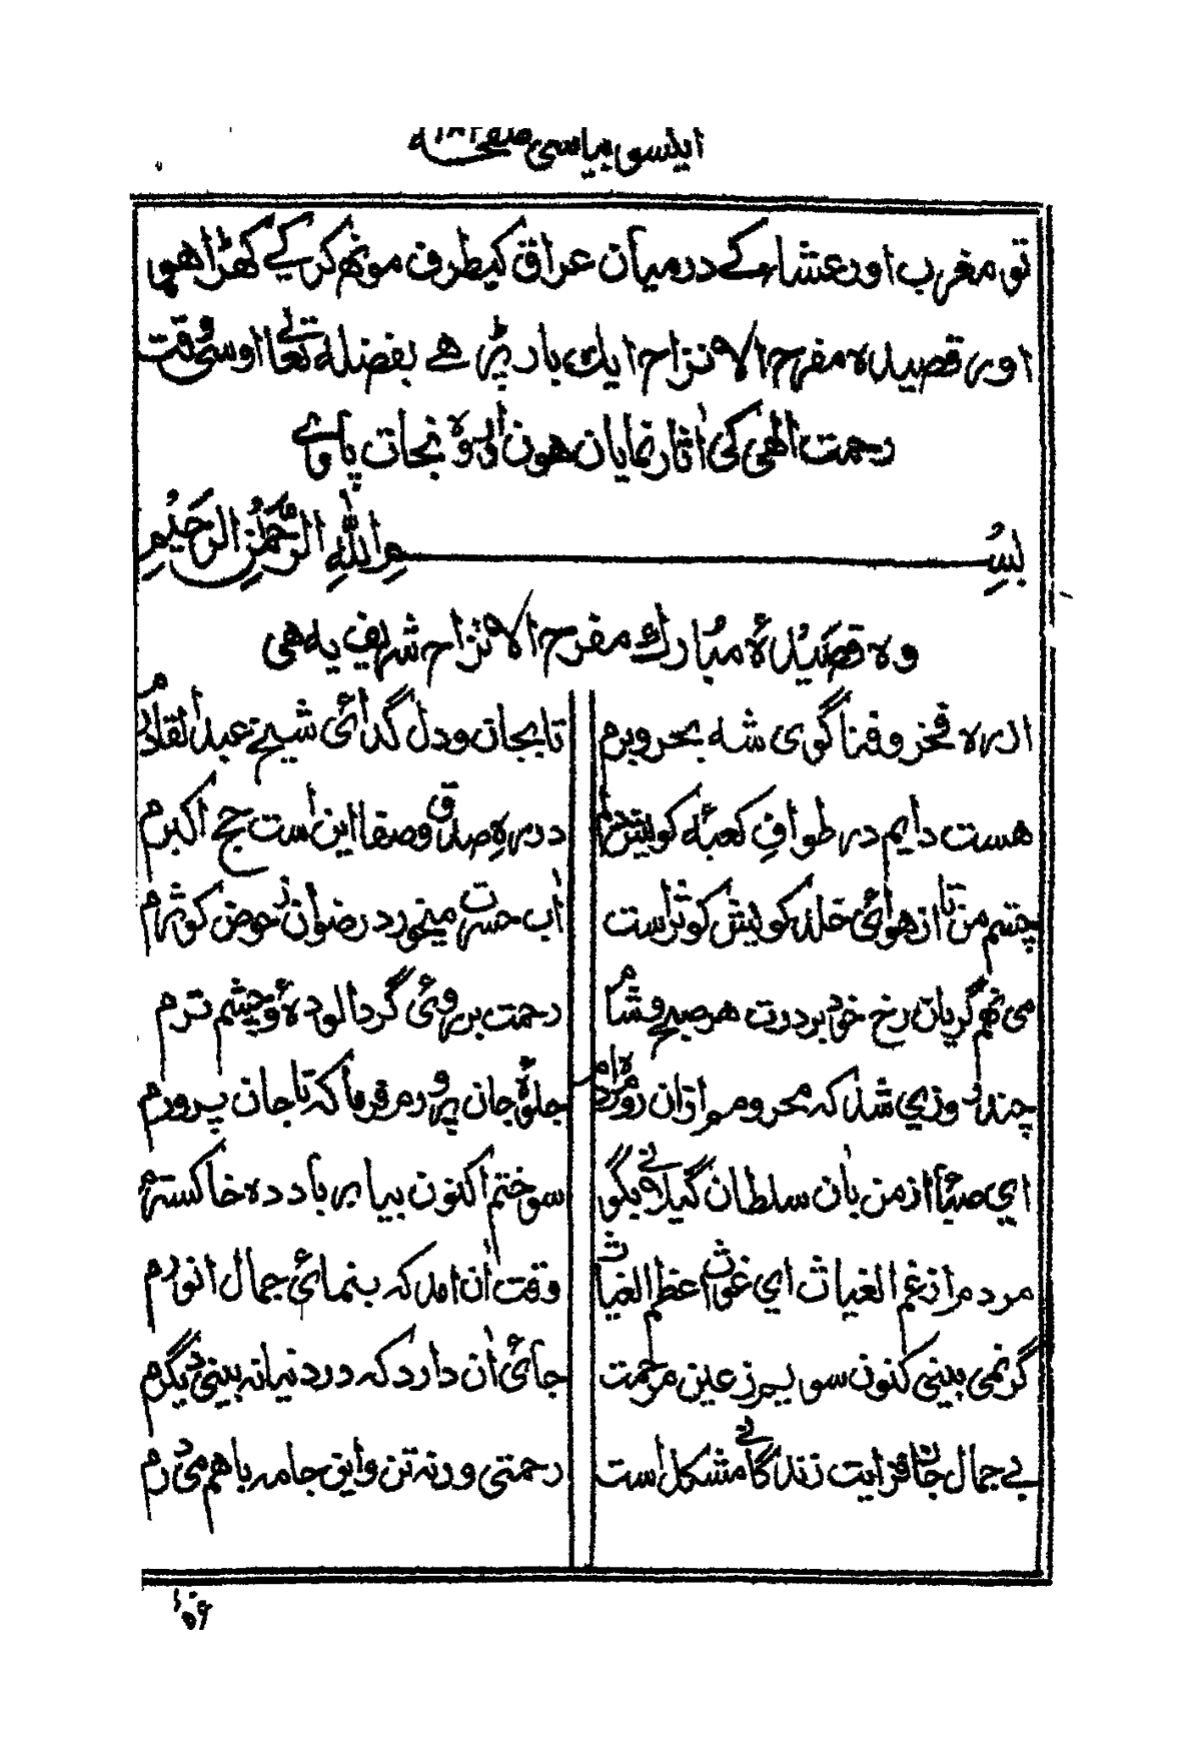 ایکسو بیاسی صفحہ ۱۸۲
تو مغرب اور عشاء کے درمیان عراق کیطرف مونھ کر کے کھڑا ھو
اور قصیدہ مفرح الانزاح ایك بار پڑھے بفضلہ تعالی اوسی وقت
رحمت الھی کی اثار نمایان ھون اور وہ نجات پاوے
بسم اللہ الرحمن الرحیم
وہ قصیدۂ مبارك مفرح الانزاح شریف یہ ھی
از رہ فخر و فنا گوی شہ بحر و برم تا بجان و دل گدائی شیخ عبدالقادرم
هست دایم در طواف کعبۂ کویش در رہ صدق وصفا این است حج اکبرم
چشم من تا از هوائی خلد کویش کوثر است اب حسرت میخورد رضوان ز حوض کوثرم
می نهم گریان رخ خود بر درت هر صبح و شام رحمت بر روئی گرد الودۂ و چشم ترم
چند روزی شد کہ محروم از ان رو جلوۂ جان پرور م فرما کہ تا جان پرورم
ای صبا از من بان سلطان گیلانی بگو سوختم اکنون بیا بر باد دہ خاکسترم
مردم از غم الغیاث ای غوث اعظم الغیاث وقت ان امد کہ بنمائی جمال انورم
گر نمی بینی کنون سویم ز عین مرحمت جائی ان دارد کہ در دنیا نہ بینی دیگرم
بے جمال جان فزایت زندگانی مشکل است رحمتی ورنہ تن و این جامہ با هم می درم